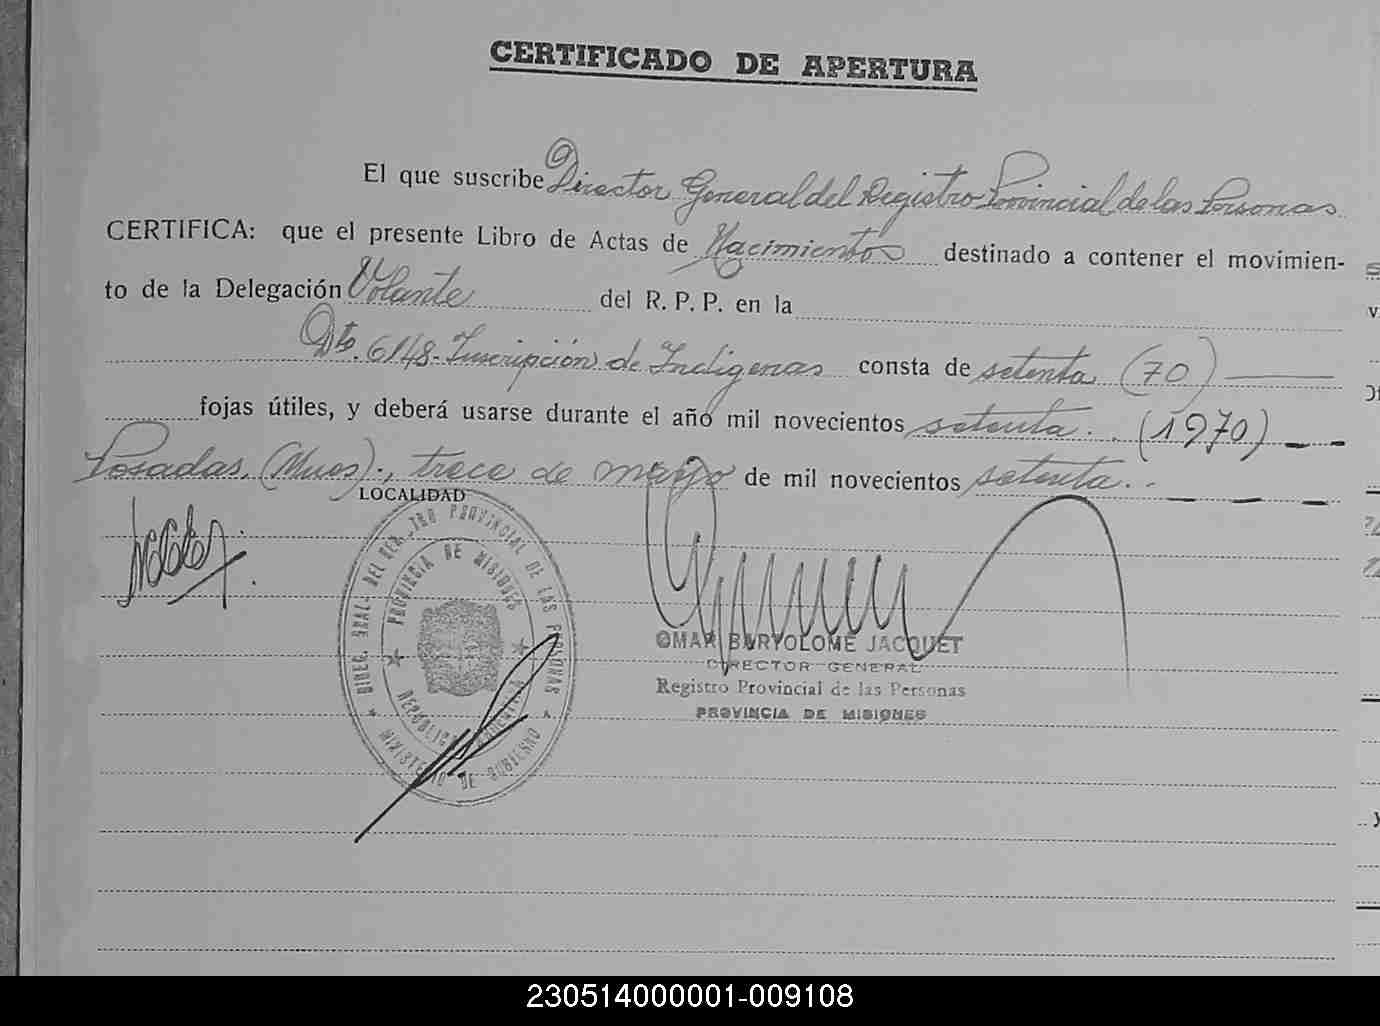 CERTIFICADO DE APERTURA
El que suscribe Director General del Registro Provincial de las Personas
CERTIFICA: que el presente Libro de Actas de Nacimientos destinado a contener el movimien-
to de la Delegación Volante del R. P. P. en la
Dto. 6148- Inscripción de Indigenas consta de setenta (70)
fojas útiles, y deberá usarse durante el año mil novecientos setenta.. (1970)
Posadas, (Mnes)., trece de de mil novecientos setenta..
LOCALIDAD
DIREC. GRAL. DEL REGISTRO PROVINCIAL DE LAS PERSONAS
MINISTERIO DE GOBIERNO
PROVINCIA DE MISIONES
REPUBLICA ARGENTINA
OMAR BARTOLOME JACQUET
DIRECTOR GENERAL
Registro Provincial de las Personas
PROVINCIA DE MISIONES
230514000001-009108